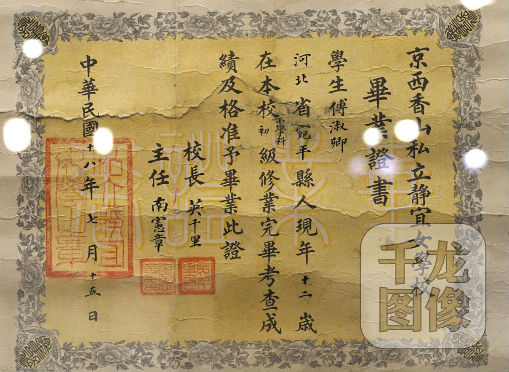 京西香山私立静宜女學校
畢業證書
學生傅淑卿
河北省宛平縣人現年十二歲
在本校初級學科修業完畢考查成
績及格准予畢業此證
校長英千里
主任南憲章
中華民國十八年七月十五日
千龙
图像